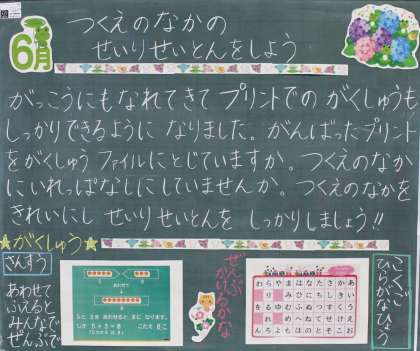 6月
つくえのなかの
せいりせいとんをしよう
がっこうにもなれてきて プリントでの がくしゅうも
しっかりできるように なりました。がんばったプリント
をがくしゅうファイルにとじていますか。つくえのなか
にいれっぱなしにしていませんか。つくえのなかを
きれいにし せいりせいとんを しっかりしましょう!!
がくしゅう
さんすう
あわせて
ふえると
みんなで
ぜんぶで
あわせて
ぜんぶ
かけるかな
こくご
ひらがなひょう
わらやまはなたさかあ
りみひにちしきい
をるゆむふぬつすくう
れめへねてせけえ
んろよもほのとそこお